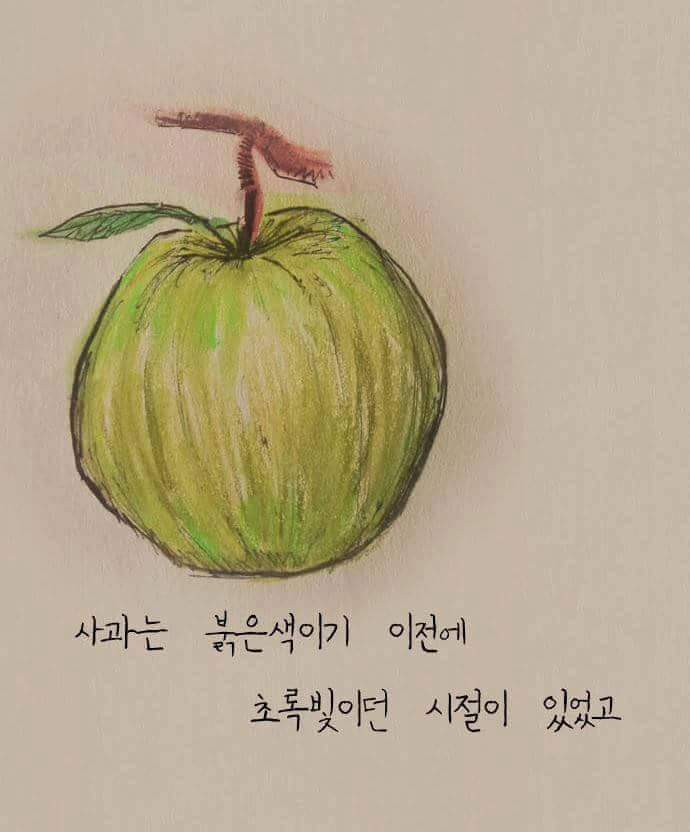 사과는 붉은색이기 이전에
초록빛이던 시절이 있었고